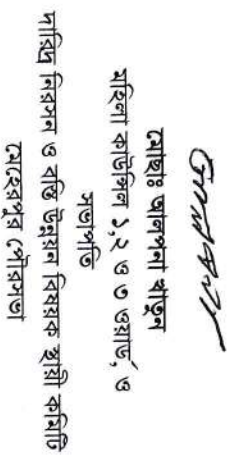 মোছাঃ আলপনা খাতুন
মহিলা কাউন্সিল ১,২ ও ৩ ওয়ার্ড, ও
সভাপতি
দারিদ্র নিরসন ও বস্তি উন্নয়ন বিষয়ক স্থায়ী কমিটি
মেহেরপুর পৌরসভা